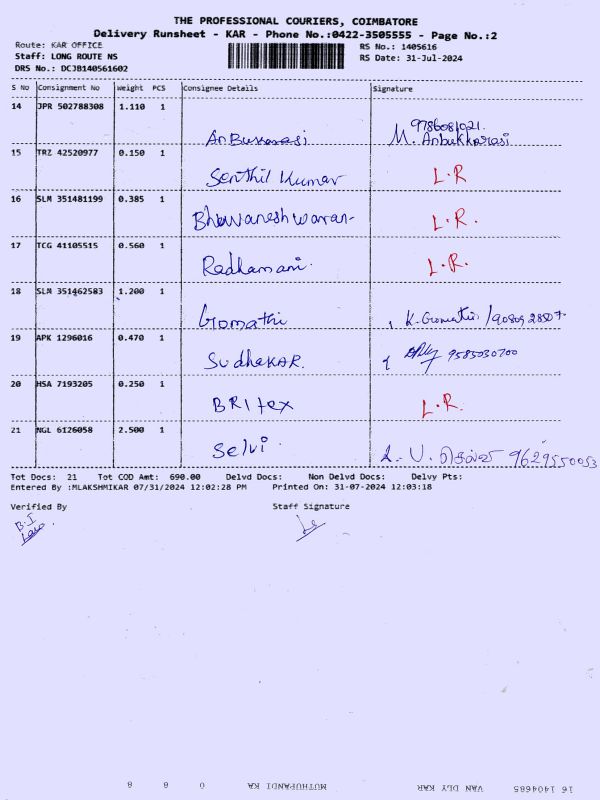 THE PROFESSIONAL COURIERS, COIMBATORE
Delivery Runsheet - KAR - Phone No.:0422-3505555 - Page No.:2
Route: KAR OFFICE RS No.: 1405616
Staff: LONG ROUTE NS RS Date: 31-Jul-2024
DRS No.: DCJB140561602
S No Consignment No Weight PCS Consignee Details Signature
14 JPR 502788308 1.110 1
9786081021.
M. Anbukkarasi
15 TRZ 42520977 0.150 1
Senthil Kumar L.R
16 SLM 351481199 0.385 1
Bhuvaneshwaran L.R.
17 TCG 41105515 0.560 1
Radhamani. L.R.
18 SLM 351462583 1.200 1
Gomathi K. Gomathi /
19 APK 1296016 0.470 1
SudhaKAR. 9585030700
20 HSA 7193205 0.250 1
BRItex L.R.
21 NGL 6126058 2.500 1
Selvi. 9629550053
Tot Docs: 21 Tot COD Amt: 690.00 Delvd Docs: Non Delvd Docs: Delvy Pts:
Entered By :MLAKSHMIKAR 07/31/2024 12:02:28 PM Printed On: 31-07-2024 12:03:18
Verified By Staff Signature
16 1404685 VAN DLY KAR MUTHUPANDI KA 0 8 8